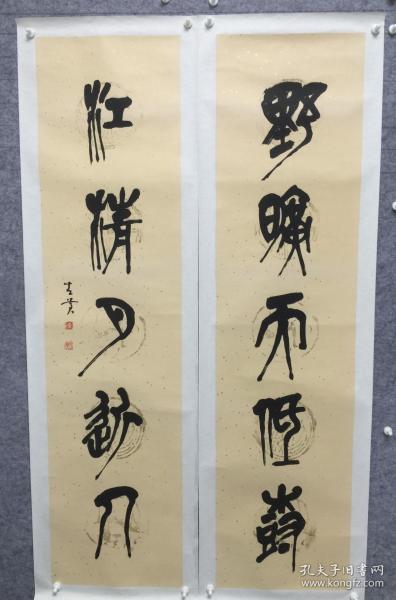 野曠天低樹
江清月近人
孔夫子旧书网
www.kongfz.com